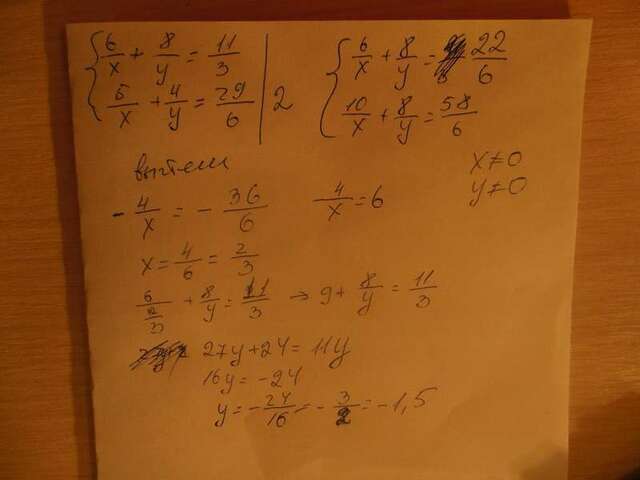 6/x + 8/y = 11/3
5/x + 4/y = 29/6 | 2
6/x + 8/y = 22/6
10/x + 8/y = 58/6
вычтем
x ≠ 0
y ≠ 0
- 4/x = - 36/6
4/x = 6
x = 4/6 = 2/3
6/(2/3) + 8/y = 11/3 → 9 + 8/y = 11/3
27y + 24 = 11y
16y = -24
y = - 24/16 = - 3/2 = -1,5